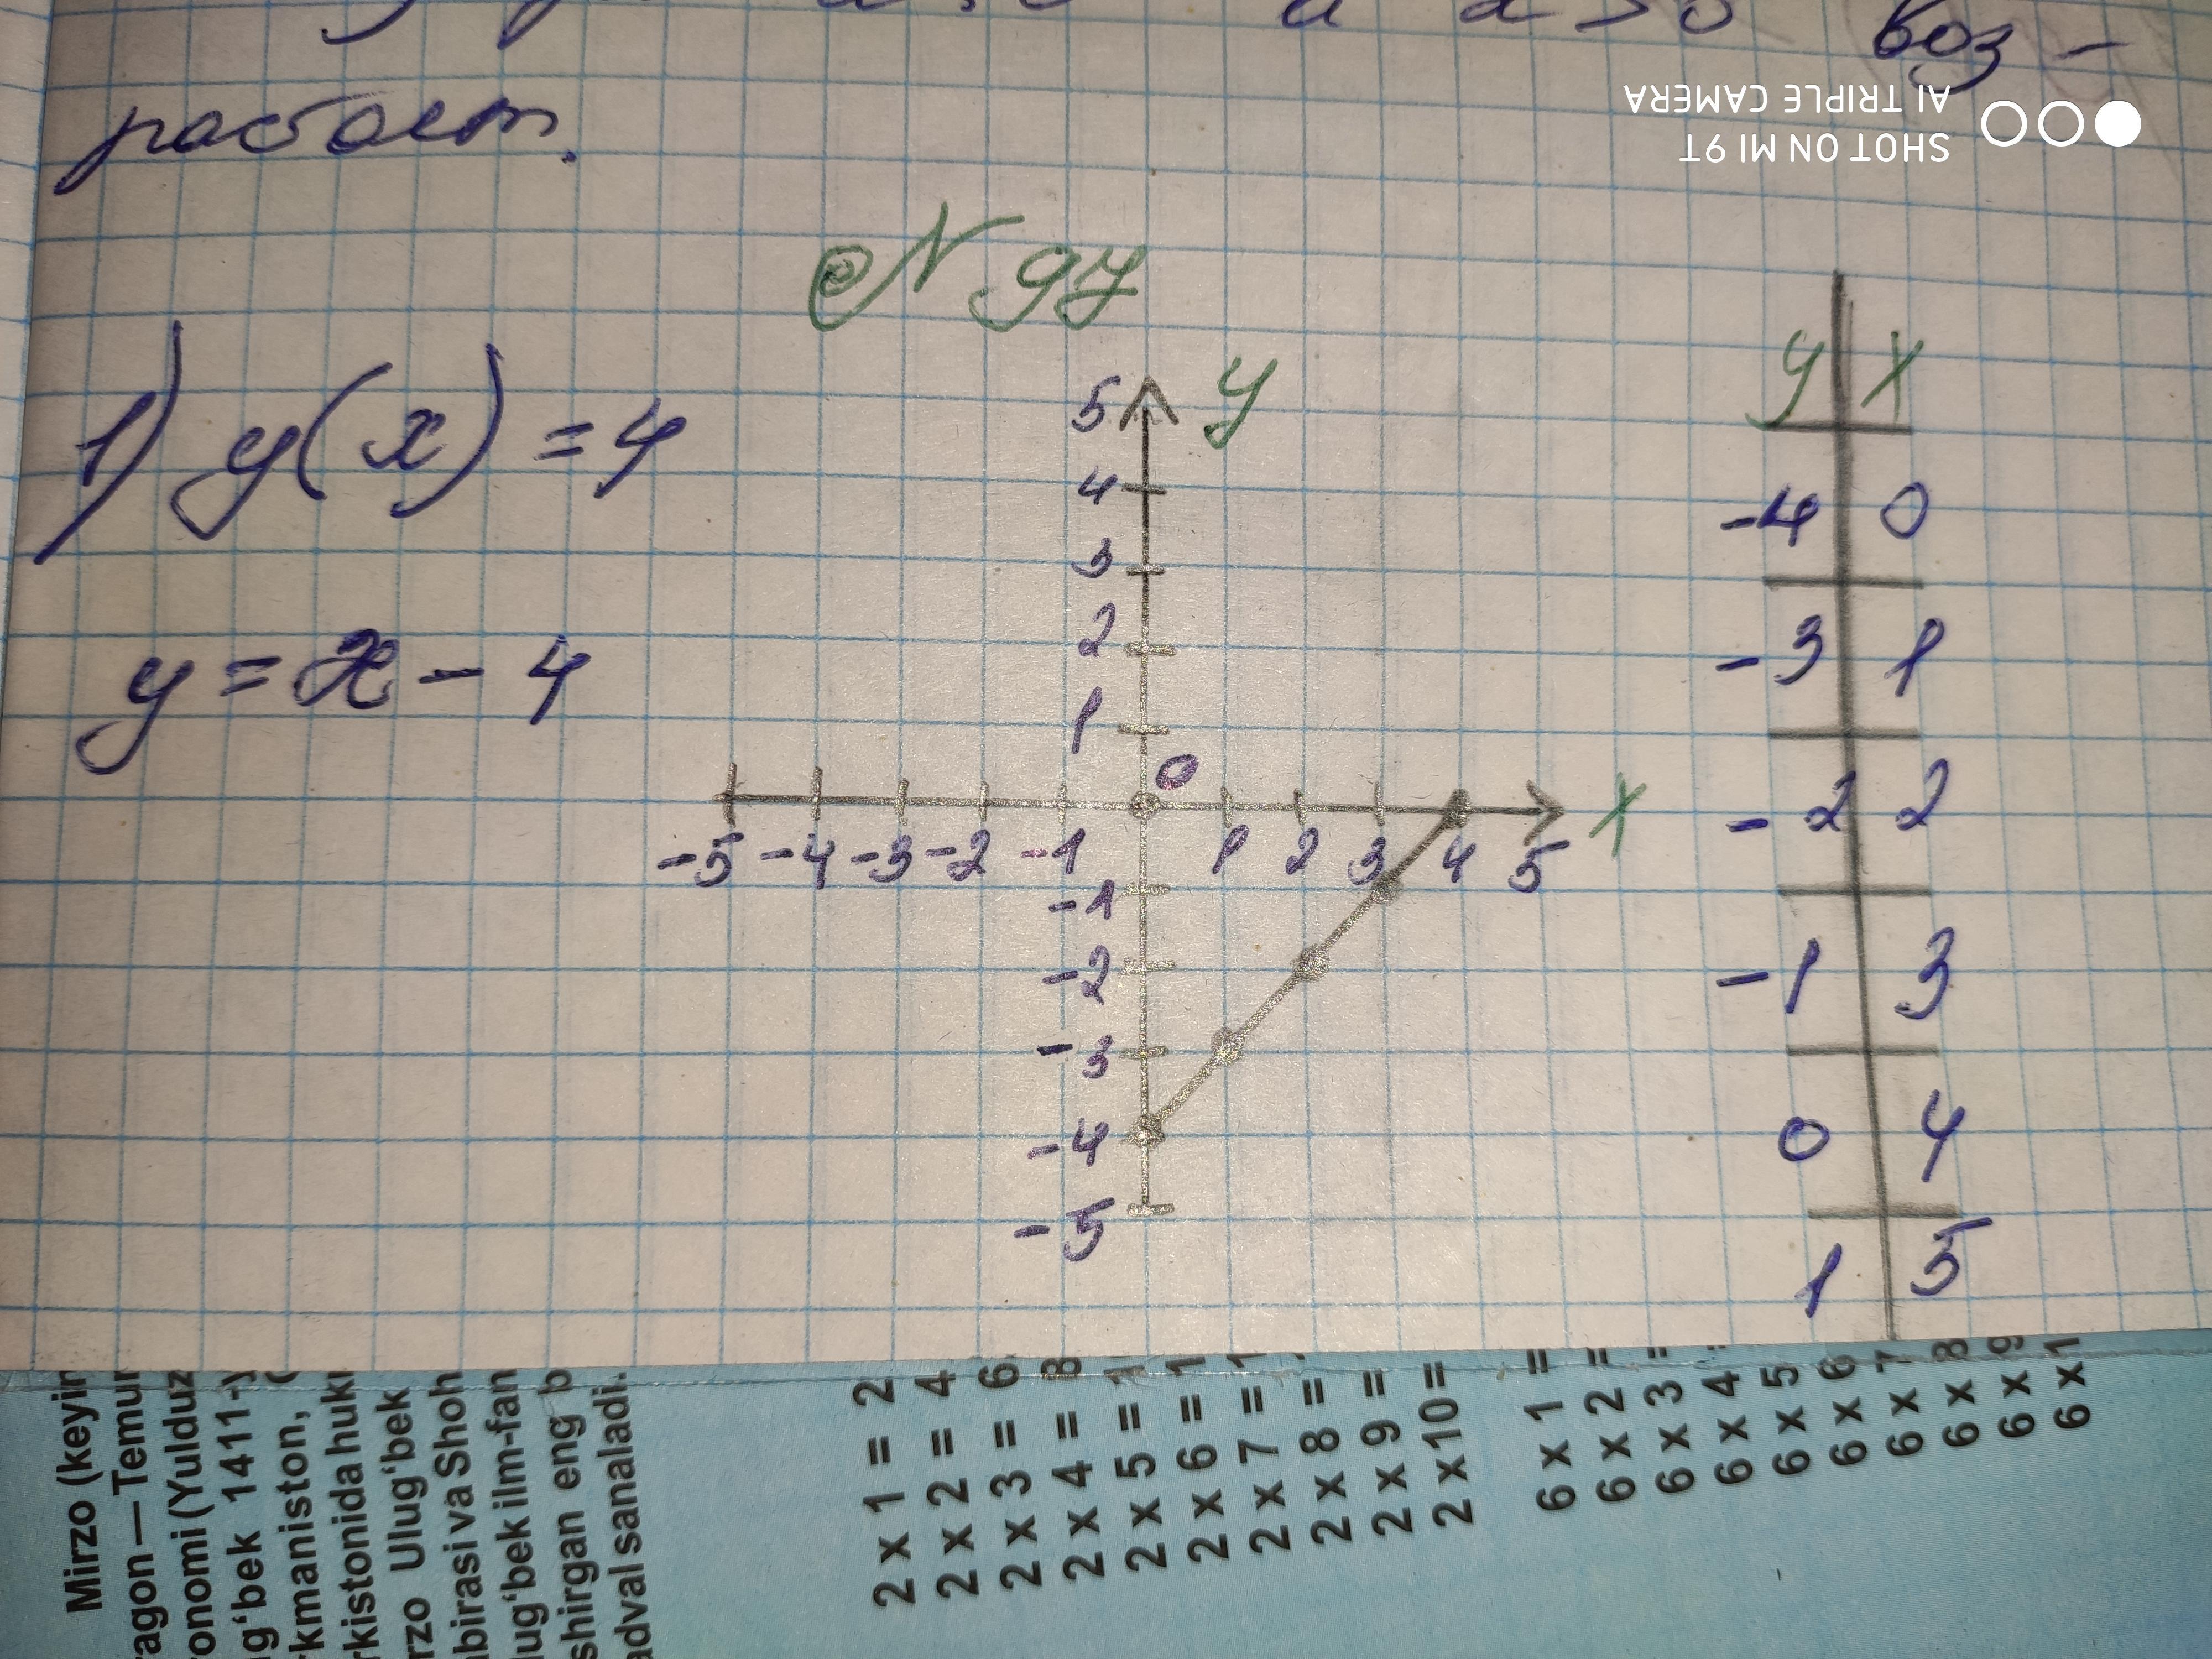 a > 0 воз-
растает.
SHOT ON MI 9T
AI TRIPLE CAMERA
№ 97
1) y(x) = 4
y = x - 4
y
5
4
3
2
1
0
-5 -4 -3 -2 -1 1 2 3 4 5 x
-1
-2
-3
-4
-5
y x
-4 0
-3 1
-2 2
-1 3
0 4
1 5
Mirzo (keyin
ragon—Temur
ronomi (Yulduz
g‘bek 1411-y
kmaniston,
rkistonida huk
rzo Ulug‘bek
abirasi va Shoh
lug‘bek ilm-fan
shirgan eng b
adval sanaladi.
2 x 1 = 2
2 x 2 = 4
2 x 3 = 6
2 x 4 = 8
2 x 5 = 1
2 x 6 = 1
2 x 7 = 1
2 x 8 =
2 x 9 =
2 x10=
6 x 1 =
6 x 2 =
6 x 3 =
6 x 4
6 x 5
6 x 6
6 x 7
6 x 8
6 x 9
6 x1